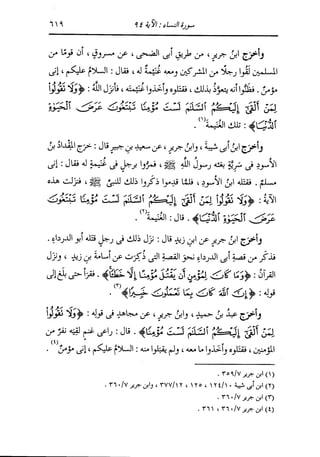 سورة النساء : الآية ٩٤ ٦١٩
وأخرج ابنُ جريرٍ ، من طريقِ أبى الضحى ، عن مسروقٍ ، أن قومًا من
المسلمين لَقُوا رجلًا من المشركين ومعه غُنَيمةٌ له ، فقال : السلامُ عليكم ، إنى
مؤمنٌ . فظنُّوا أنه يتعوَّذُ بذلك ، فقتلوه وأخذوا غُنيمتَه ، فأنزل اللهُ : ﴿وَلَا تَقُولُوا
لِمَنْ أَلْقَىٰ إِلَيْكُمُ السَّلَامَ لَسْتَ مُؤْمِنًا تَبْتَغُونَ عَرَضَ الْحَيَوٰةِ
الدُّنْيَا﴾ : تلك الغُنَيمةُ(١) .
وأخرج ابنُ أبى شيبةَ ، وابنُ جريرٍ ، عن سعيدِ بنِ جبيرٍ قال : خرَج المقدادُ بنُ
الأسودِ فى سَرِيَّةٍ بعَثه رسولُ اللهِ ﷺ ، فمرُّوا برجلٍ فى غُنيمةٍ له فقال : إنى
مسلمٌ . فقتَله ابنُ الأسودِ ، فلمَّا قدِموا ذكَروا ذلك للنبىِّ ﷺ ، فنزَلت هذه
الآيةُ : ﴿وَلَا تَقُولُوا لِمَنْ أَلْقَىٰ إِلَيْكُمُ السَّلَامَ لَسْتَ مُؤْمِنًا تَبْتَغُونَ
عَرَضَ الْحَيَوٰةِ الدُّنْيَا﴾ . قال : الغُنيمةُ(٢) .
وأخرج ابنُ جريرٍ عن ابنِ زيدٍ قال : نزَل ذلك فى رجلٍ قتَله أبو الدرداءِ .
فذكَر من قصةِ أبى الدرداءِ نحوَ القصةِ التى ذُكِرت عن أسامةَ بنِ زيدٍ ، ونزَل
القرآنُ : ﴿وَمَا كَانَ لِمُؤْمِنٍ أَن يَقْتُلَ مُؤْمِنًا إِلَّا خَطَئًا﴾ . فقرَأ حتى بلَغ إلى
قولِه : ﴿إِنَّ اللَّهَ كَانَ بِمَا تَعْمَلُونَ خَبِيرًا﴾(٣) .
وأخرج عبدُ بنُ حميدٍ ، وابنُ جريرٍ ، عن مجاهدٍ فى قولِه : ﴿وَلَا تَقُولُوا
لِمَنْ أَلْقَىٰ إِلَيْكُمُ السَّلَامَ لَسْتَ مُؤْمِنًا﴾ . قال : راعى غنمٍ لَقِيَه نفرٌ من
المؤمنين ، فقتَلوه وأخَذوا ما معه ، ولم يقبَلوا منه : السلامُ عليكم ، إنى مؤمنٌ(٤) .
(١) ابن جرير ٧/ ٣٥٩ .
(٢) ابن أبى شيبة ١٠/ ١٢٤، ١٢٥، ١٢/ ٣٧٧، وابن جرير ٧/ ٣٦٠ .
(٣) ابن جرير ٧/ ٣٦٠ .
(٤) ابن جرير ٧/ ٣٦٠، ٣٦١ .